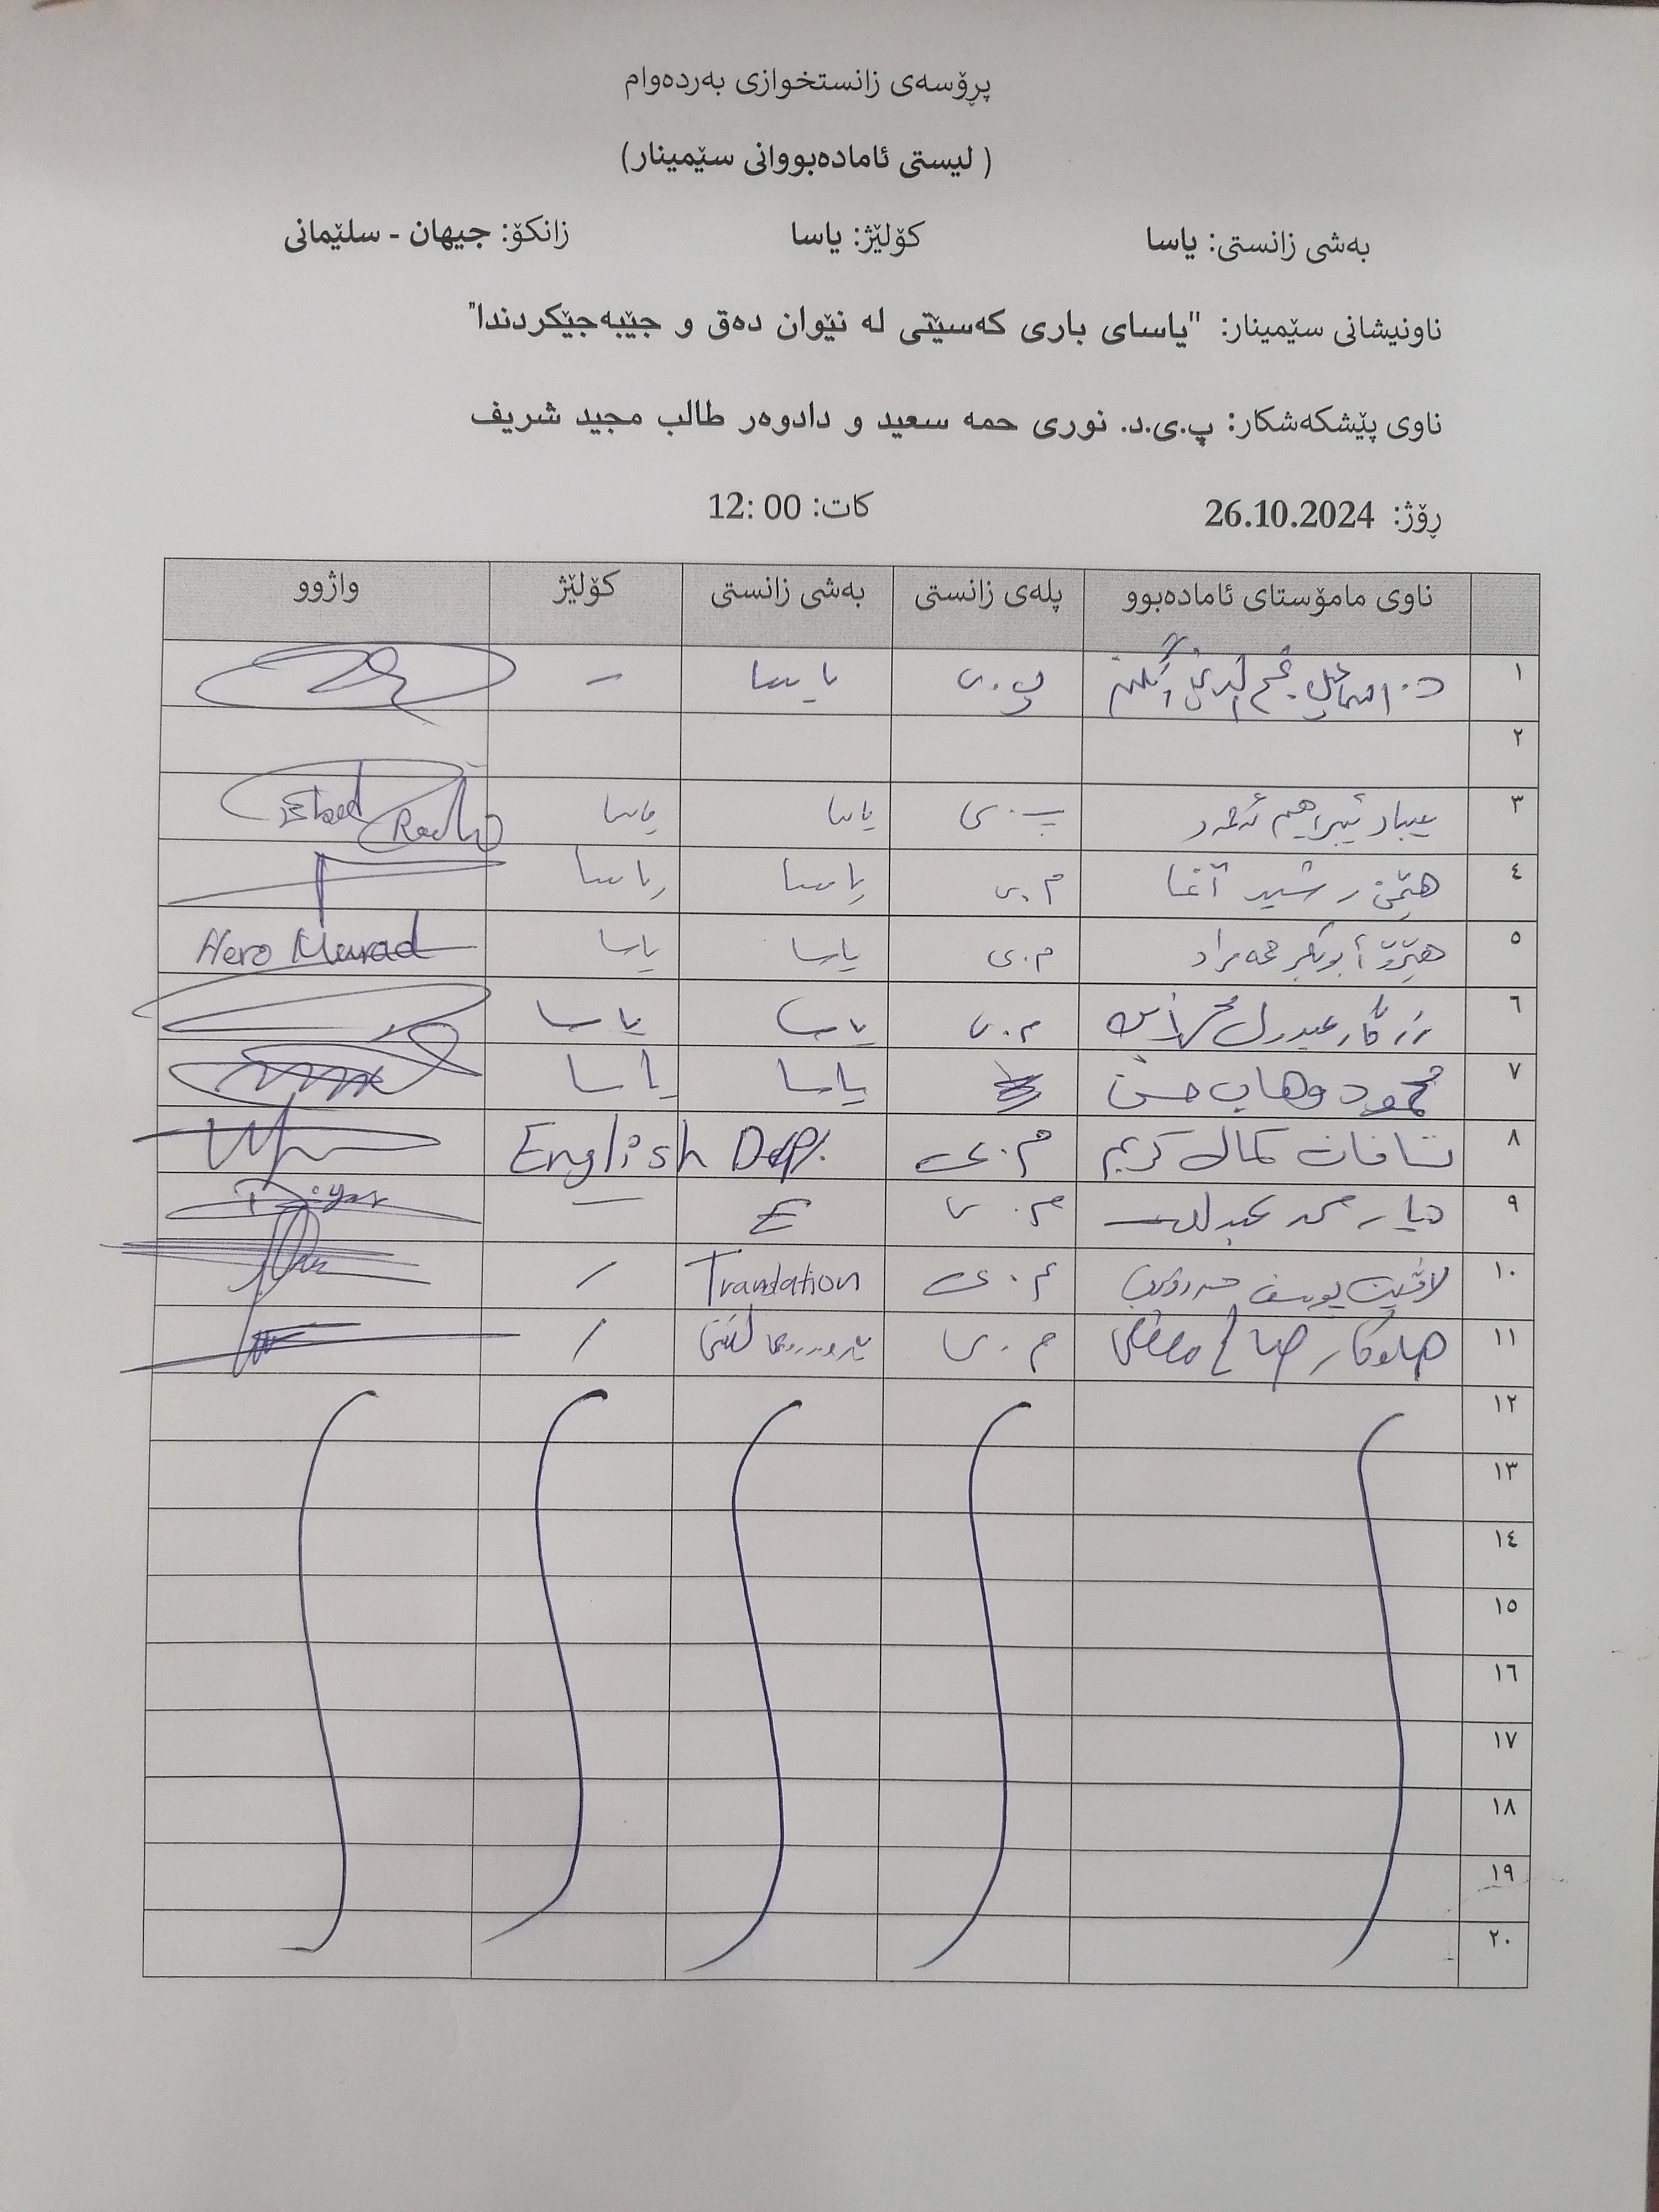 پڕۆسەی زانستخوازی بەردەوام
( لیستی ئامادەبووانی سێمینار)
بەشی زانستی: یاسا کۆلێژ: یاسا زانکۆ: جیهان - سلێمانی
ناونیشانی سێمینار: "یاسای باری کەسێتی لە نێوان دەق و جێبەجێکردندا"
ناوی پێشکەشکار: پ.ی.د. نوری حمە سعید و دادوەر طالب مجید شریف
ڕۆژ: 26.10.2024 کات: 12: 00
ناوی مامۆستای ئامادەبوو پلەی زانستی بەشی زانستی کۆلێژ واژوو
١ د. اسماعیل نجم الدین پ.ی یاسا -
٢
٣ عیباد ئیبراهیم ئەحمەد پ.ی یاسا یاسا Ebad
٤ هێمن رشید آغا م.ی یاسا یاسا
٥ هێرۆ أبوبکر حمە مراد م.ی یاسا یاسا Hero Murad
٦ رزگار م.ی یاسا یاسا
٧ محمود وهاب حسن یاسا یاسا
٨ تافان کمال کریم م.ی English Dep.
٩ دیار محمد عبدالله م.ی E - Diyar
١٠ یوسف م.ی Translation /
١١ هەڵوکار صالح مصطفى م.ی /
١٢
١٣
١٤
١٥
١٦
١٧
١٨
١٩
٢٠